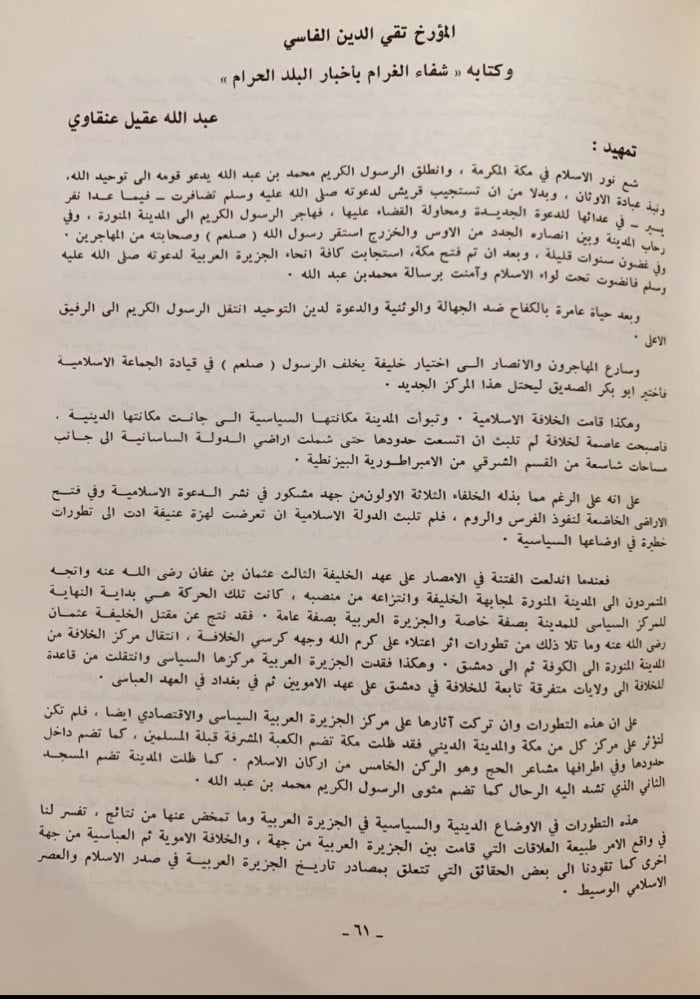 المؤرخ تقي الدين الفاسي
وكتابه « شفاء الغرام بأخبار البلد الحرام »
عبد الله عقيل عنقاوي
تمهيد :
شع نور الاسلام في مكة المكرمة ، وانطلق الرسول الكريم محمد بن عبد الله يدعو قومه الى توحيد الله،
ونبذ عبادة الاوثان ، وبدلا من ان تستجيب قريش لدعوته صلى الله عليه وسلم تضافرت ــ فيما عدا نفر
يسير ــ في عدائها للدعوة الجديدة ومحاولة القضاء عليها ، فهاجر الرسول الكريم الى المدينة المنورة ، وفي
رحاب المدينة وبين انصاره الجدد من الاوس والخزرج استقر رسول الله ( صلعم ) وصحابته من المهاجرين .
وفي غضون سنوات قليلة ، وبعد ان تم فتح مكة، استجابت كافة انحاء الجزيرة العربية لدعوته صلى الله عليه
وسلم فانضوت تحت لواء الاسلام وآمنت برسالة محمدبن عبد الله .
وبعد حياة عامرة بالكفاح ضد الجهالة والوثنية والدعوة لدين التوحيد انتقل الرسول الكريم الى الرفيق
الاعلى .
وسارع المهاجرون والانصار الـى اختيار خليفة يخلف الرسول ( صلعم ) في قيادة الجماعة الاسلامية
فأختير ابو بكر الصديق ليحتل هذا المركز الجديد .
وهكذا قامت الخلافة الاسلامية . وتبوأت المدينة مكانتها السياسية الـى جانت مكانتها الدينية ،
فأصبحت عاصمة لخلافة لم تلبث ان اتسعت حدودها حتى شملت اراضي الـدولـة الساسانية الى جانب
مساحات شاسعة من القسم الشرقي من الامبراطورية البيزنطية .
على انه على الرغم مما بذله الخلفاء الثلاثة الاولون‌من جهد مشكور في نشر الـدعوة الاسلامية وفي فتـح
الاراضى الخاضعة لنفوذ الفرس والروم ، فلم تلبث الدولة الاسلامية ان تعرضت لهزة عنيفة ادت الى تطورات
خطيرة في اوضاعها السياسية .
فعندما اندلعت الفتنة في الامصار على عهد الخليفة الثالث عثمان بن عفان رضى اللـه عنه واتجـه
المتمردون الى المدينة المنورة لمجابهة الخليفة وانتزاعه من منصبه ، كانت تلك الحركة هي بداية النهاية
للمركز السياسى للمدينة بصفة خاصة والجزيرة العربية بصفة عامة . فقد نتج عن مقتل الخليفة عثمـان
رضى الله عنه وما تلا ذلك من تطورات اثر اعتلاء على كرم الله وجهه كرسي الخلافـة ، انتقال مركز الخلافة من
المدينة المنورة الى الكوفة ثم الى دمشق . وهكذا فقدت الجزيرة العربية مركزها السياسى وانتقلت من قاعدة
للخلافة الى ولايات متفرقة تابعة للخلافة في دمشق على عهد الامويين ثم في بغداد في العهد العباسى .
على ان هذه التطورات وان تركت آثارها على مركز الجزيرة العربية السياسى والاقتصادي ايضا ، فلم تكن
لتؤثر على مركز كل من مكة والمدينة الديني فقد ظلت مكة تضم الكعبة المشرفة قبلة المسلمين ، كما تضم داخل
حدودها وفي اطرافها مشاعر الحج وهو الركن الخامس من اركان الاسلام . كما ظلت المدينة تضم المسجد
الثاني الذي تشد اليه الرحال كما تضم مثوى الرسول الكريم محمد بن عبد الله .
هذه التطورات في الاوضاع الدينية والسياسية في الجزيرة العربية وما تمخض عنها من نتائج ، تفسر لنا
في واقع الامر طبيعة العلاقات التي قامت بين الجزيرة العربية من جهة ، والخلافة الاموية ثم العباسية من جهة
اخرى كما تقودنا الى بعض الحقائق التي تتعلق بمصادر تاريخ الجزيرة العربية في صدر الاسلام والعصر
الاسلامي الوسيط .
ــ ٦١ ــ